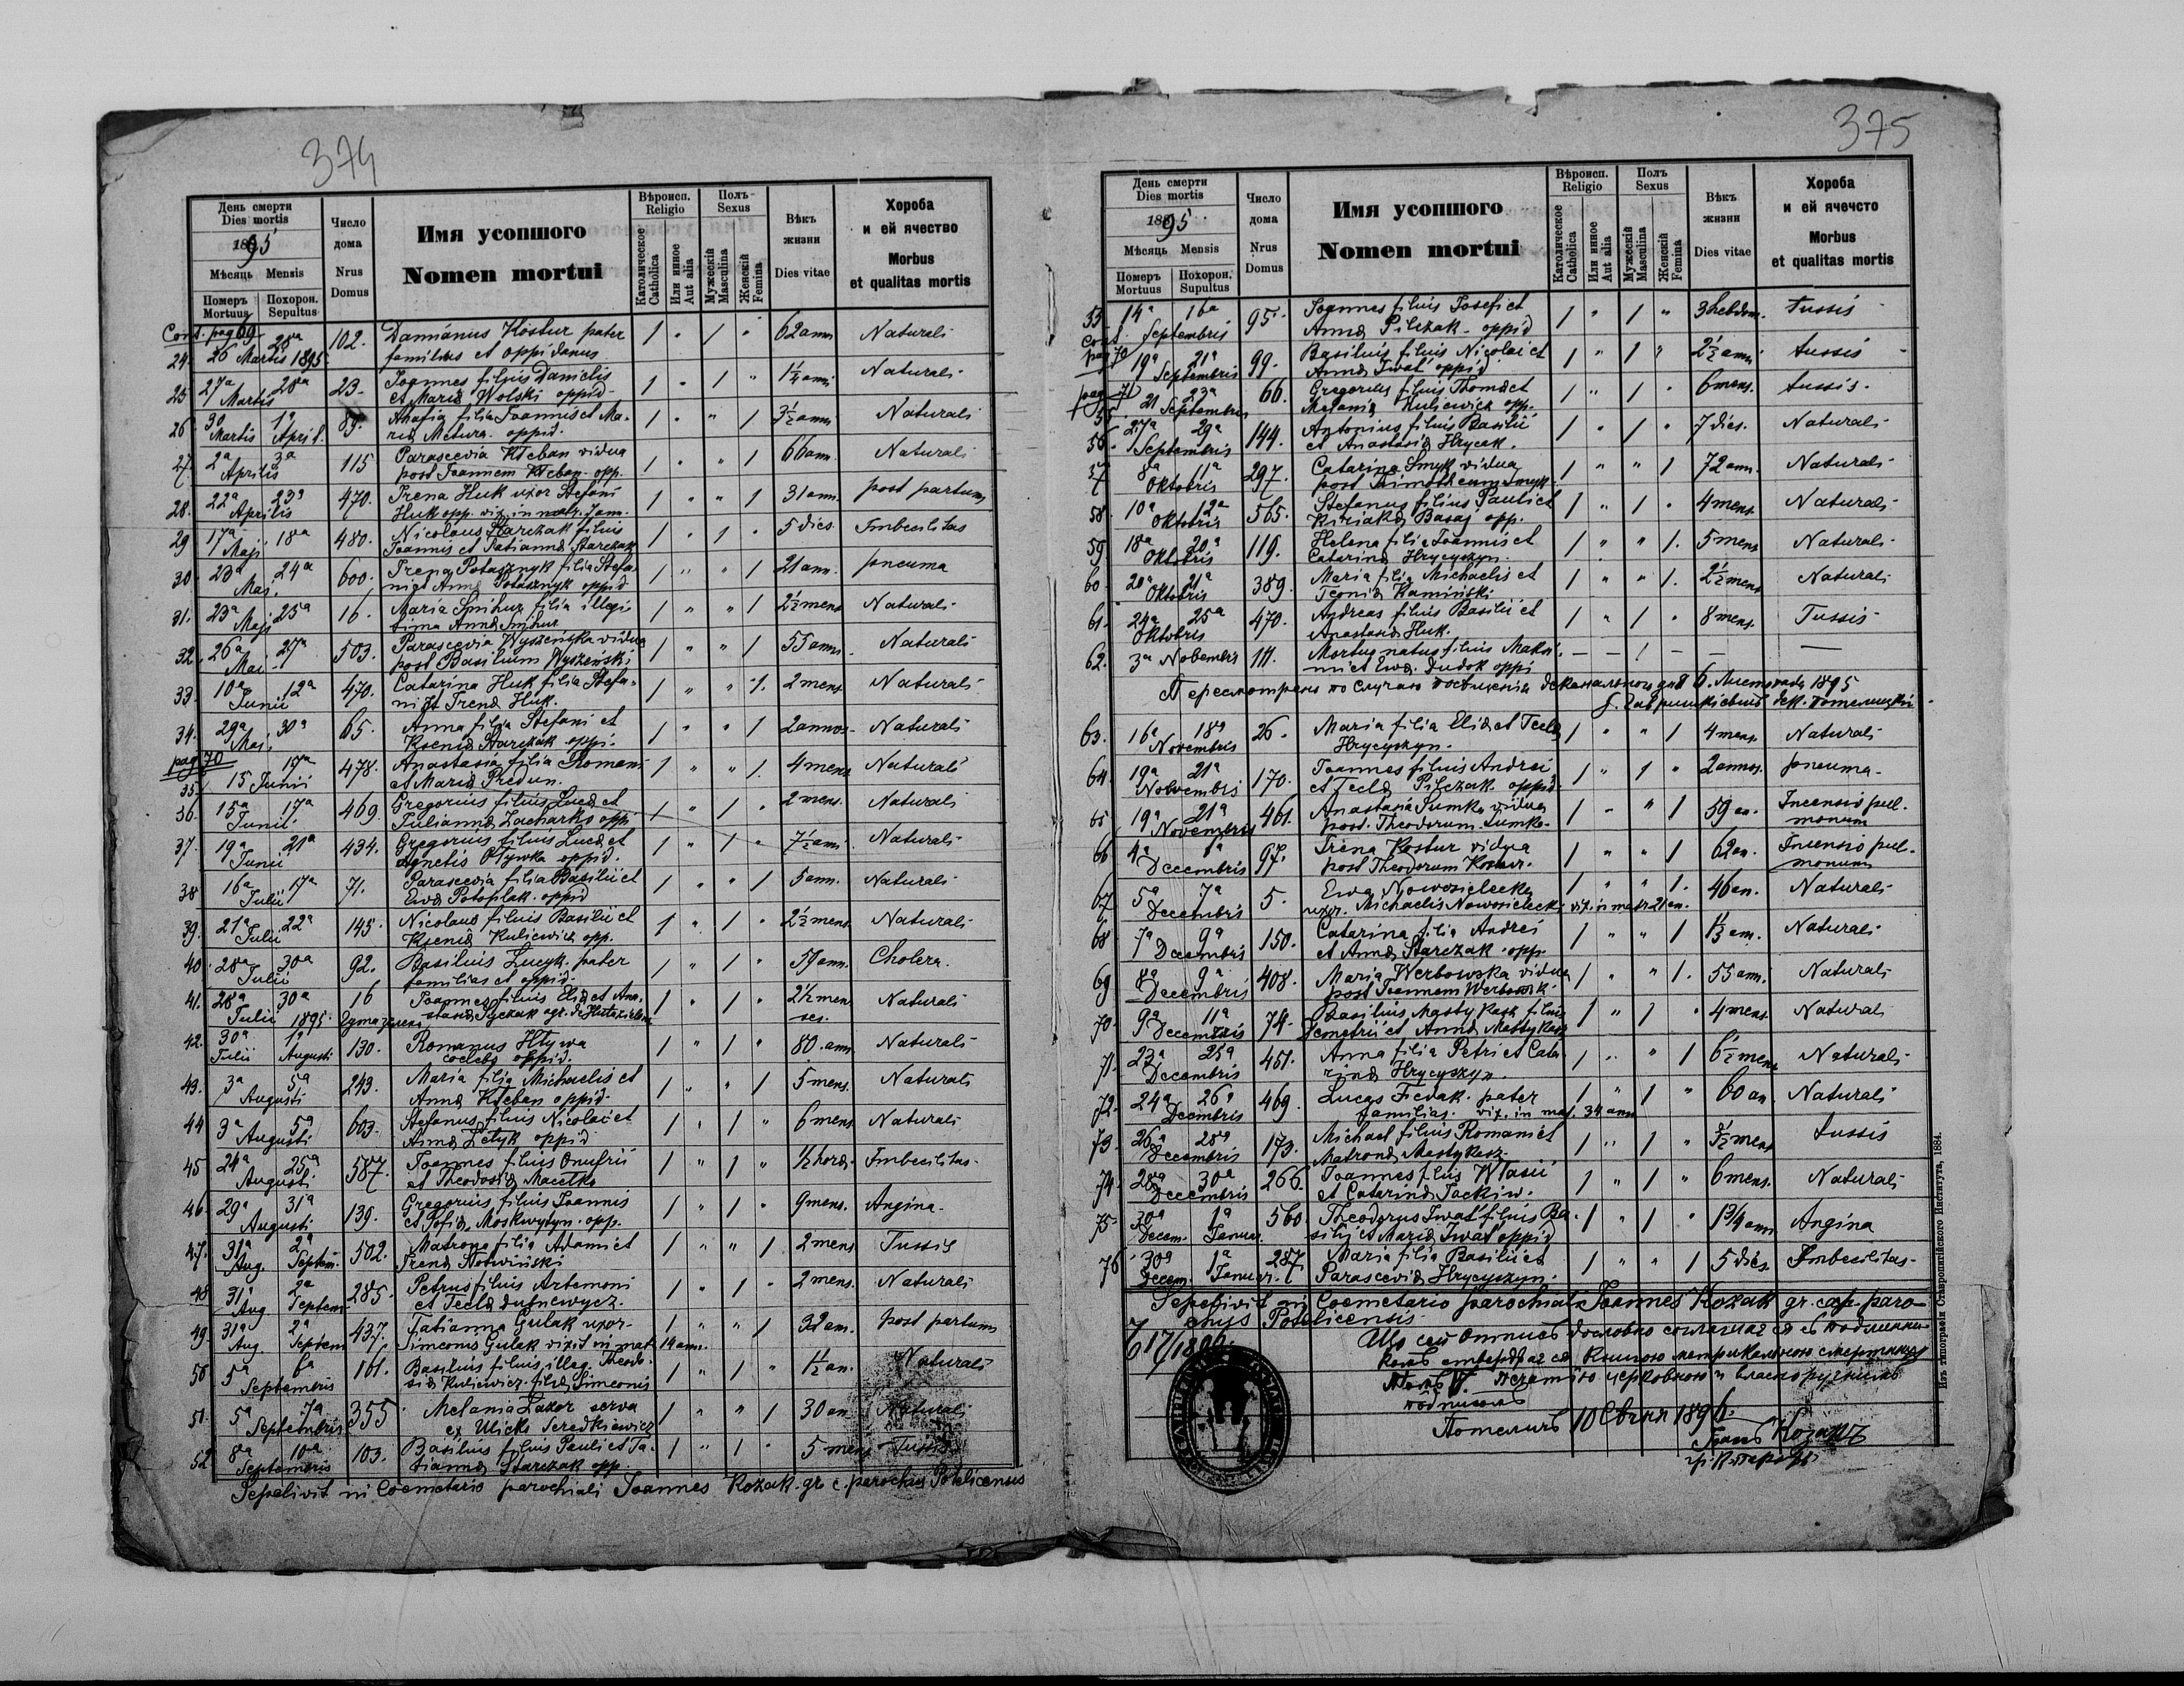 374
День смерти
Dies mortis
1895
Мѣсяць Mensis
Померъ Похорон.
Mortuus Sepultus
Число
дома
Nrus
Domus
Имя усопшого
Nomen mortui
Вѣроисп.
Religio
Католическое
Catholica
Или инное
Aut alia
Полъ
Sexus
Мужескій
Masculina
Женскій
Femina
Вѣкъ
жизни
Dies vitae
Хороба
и ей ячество
Morbus
et qualitas mortis
Cont. pag 69
24. 26 28a Martis 1895. 102. Damianus Kostur pater 1 " 1 " 62 ann Naturali
familias et oppidanus
25 27a 28a Martis 23. Joannes filius Danielis 1 " 1 " 1 1/4 anni Naturali
et Maria Wolski oppid.
26 30 Martis 1a April. 89. Ahafia filia Joannis et Ma- 1 " " 1 3 1/2 ann Naturali
ria Metura. oppid.
27. 2a 3a Aprilis 115 Parascevia Kłeban vidua 1 " " 1 66 ann. Naturali
post Joannem Kłeban. opp.
28. 22a 23a Aprilis 470. Irena Huk uxor Stefani 1 " " 1 31 ann. post partum
Huk opp. vix. in matr.
29 17a 18a Maji 480. Nicolaus Starczak filius 1 " 1 " 5 dies Imbecilitas
Joannis et Tatianna Starczak
30 23a 24a Maj. 600. Irena Potasznyk filia Stefa- 1 " " 1 21 ann. pneuma
ni et Anna Potasznyk oppid
31. 23a 25a Maji 16. Maria Smihur filia illegi- 1 " " 1 2 1/2 mens Naturali
tima Anna Smihur
32. 26a 27a Mai. 503. Parascevia Wyszeńska vidua 1 " " 1 55 anns. Naturali
post Basilium Wyszeński
33. 10a 12a Junii 470. Catarina Huk filia Stefa- 1 " " 1. 2 mens Naturali
ni et Irena Huk.
34. 29a 30a Maj. 65. Anna filia Stefani et 1 " " 1 2 annos. Naturali
Ksenia Starczak oppi.
pag 70
35. 15 17a Junii 478. Anastasia filia Romani 1 " " 1. 4 mens Naturali
et Maria Predun.
36. 15a 17a Junii. 469. Gregorius filius Luca et 1 " 1 " 2 mens. Naturali
Julianna Zacharko oppi
37. 19a 21a Junii 434. Gregorius filius Luca et 1 " 1 " 7 1/2 anni Naturali
Agnetis Oływka oppid.
38 16a 17a Julii 71. Parascevia filia Basilii et 1 " " 1 5 ann. Naturali
Ewa Potoplak. oppid
39. 21a 22a Julii 145. Nicolaus filius Basilii et 1 " 1 " 2 1/2 mens. Naturali
Ksenia Kuliewicz opp.
40. 28a 30a Julii 92. Basilius Lucyk. pater 1 " 1 " 59 ann. Cholera.
familias et oppid.
41. 28a 30a Julii 1895. 16 Joannes filius Elia et Ana- 1 " 1 " 2 1/2 men Naturali
stasia Syczak agr. de Huta zielona ses.
42. 30a Julii 1a Augusti 130. Romanus Hływa 1 " 1 " 80. ann Naturali
coelebs oppid.
43. 3a 5a Augusti 243. Maria filia Michaelis et 1 " " 1 5 mens. Naturali
Anna Kłeban oppid.
44 3a 5a Augusti 603. Stefanus filius Nicolai et 1 " 1 " 6 mens Naturali
Anna Letyk oppid
45 24a 25a Augusti. 587. Joannes filius Onufrii 1 " 1 " 1/2 hora. Imbecilitas.
et Theodosia Macełko
46. 29a 31a Augusti 139. Gregorius filius Joannis 1 " 1 " 9 mens. Angina.
et Sofia Moskwytyn. opp.
47. 31a Aug. 2a Septem. 502. Matrona filia Adami et 1 " " 1 2 mens Tussis
Irena Notwiński
48 31a Aug 2a Septem 285. Petrus filius Artemoni 1 " 1 " 2 mens. Naturali
et Tecla Dufnewycz.
49 31a Aug 2a Septem 437. Tatianna Gulak uxor 1 " " 1 32 ann. post partum
Simeonis Gulak vixit in mat. 14 ann.
50 5a 6a Septembris 161. Basilius filius illeg. Theodo- 1 " 1 " 1 1/2 an. Naturali
sia Kuliewicz. filia Simeonis
51. 5a 7a Septembris 355 Melania Łazor serva 1 " " 1 30 an Naturali
ex Ulicko Seredkiewicz
52 8a 10a Septembris 103. Basilius filius Pauli et Ta- 1 " 1 " 5 mens Tussis
tianna Starczak opp.
Sepelivit in Coemetario parochiali Joannes Kozak. gr. c. parochus Potelicensis
375
День смерти
Dies mortis
1895
Мѣсяць Mensis
Померъ Похорон.
Mortuus Supultus
Число
дома
Nrus
Domus
Имя усопшого
Nomen mortui
Вѣроисп.
Religio
Католическое
Catholica
Или инное
Aut alia
Полъ
Sexus
Мужескій
Masculina
Женскій
Femina
Вѣкъ
жизни
Dies vitae
Хороба
и ей ячечсто
Morbus
et qualitas mortis
53 14a 16a Septembris 95. Joannes filius Josefi et 1 " 1 " 3 hebdom. tussis
Anna Pilczak. oppid
Cont. pag 70
19a 21a Septembris 99. Basilius filius Nicolai et 1 " 1 " 2 1/2 anni tussis
Anna Iwat oppid
pag 71
55. 21 23a Septembris 66. Gregorius filius Thoma et 1 " 1 " 6 mens. tussis.
Melania Kuliewicz opp.
56. 27a 29a Septembris 144. Antonius filius Basilii 1 " 1 " 7 dies. Naturali
et Anastasia Hrycak.
57 8a 11a Oktobris 297. Catarina Smyk vidua 1 " " 1 72 ann. Naturali
post Timotheum Smyk
58. 10a 12a Oktobris 565. Stefanus filius Pauli et 1 " 1 " 4 mens Naturali
Kiriaka Basaj opp.
59. 18a 20a Oktobris 119. Helena filia Joannis et 1 " " 1. 5 mens Naturali
Catarina Hrycyszyn.
60. 20a 21a Oktobris 389. Maria filia Michaelis et 1 " " 1. 2 1/2 mens Naturali
Teonia Kamiński
61. 24a 25a Oktobris 470. Andreas filius Basilii et 1 " 1 " 8 mens. Tussis
Anastasia Huk.
62. 3a Nobembris 111. Mortuq natus filius Maksi- — — 1 — — —
mi et Ewa. Dudok oppi
Пересмотрено по случаю посѣщенія деканального дня 6. Листопада 1895
63. 16a 18a Novembris 26. Maria filia Elia et Tecla 1 " " 1 4 mens. Naturali
Hrycyszyn.
64. 19a 21a Nobvembris 170. Joannes filius Andrei 1 " 1 " 2 annos. pneuma.
et Tecla Pilczak. oppid.
65 19a 21a Novembris 461. Anastasia Sumka vidua 1 " " 1 59 an. Incensio pul-
post. Theodorum Sumka. monum
66 4a Decembris 97. Irena Kostur vidua 1 " " 1 62 an. Incensio pul-
post Theodorum Kostur. monum
67 5a 7a Decembris 5. Ewa Nowosielecka 1 " " 1. 46 an. Naturali
uxor. Michaelis Nowosielecki vix. in matr 21 an.
68 7a 9a Decembris 150. Catarina filia Andrei 1 " " 1 1 1/3 ann. Naturali
et Anna Starczak. opp.
69 8a 9a Decembris 408. Maria Werbowska vidua 1 " " 1. 55 ann. Naturali
post Joannem
70. 9a 11a Decembris 74. Basilius Mastykasz filius 1 " 1 " 4 mens. Naturali
Demetrii et Anna Mastykasz
71. 23a 25a Decembris 451. Anna filia Petri et Cata- 1 " " 1 6 1/2 mens Naturali
rina Hrycyszyn.
72. 24a 26a Decembris 469. Lucas Fedak. pater 1 " 1 " 60 an Naturali
familias. vix. in mat. 34 ann
73. 26a 28a Decembris 173. Michael filius Romani et 1 " 1 " mens tussis
Matrona Mastykasz.
74. 28a 30a Decembris 266. Joannes filius Własii 1 " 1 " 6 mens. Naturali
et Catarina Jackiw.
75. 30a Decem. 1a Januar. 560. Theodorus Iwat filius Ba- 1 " 1 " 1 3/4 ann Angina
silii et Maria Iwat oppid
76 30a Decem. 1a Januar. 287 Maria filia Basilii et 1 " " 1 5 dies. Imbecilitas.
Parascevia Hrycyszyn.
Sepelivit in Coemetario parochiali Joannes Kozak gr. cap. paro-
chus Potelicensis
Що сей дословно согласuae ся съ
Книгою метрикальною
Томъ V. Печатію церковною и власноручнымъ
подписомъ
Потеличъ 10 Сѣчня 1896.
Іоанъ Козакъ
Изъ типографіи Ставропигійского Института, 1884.